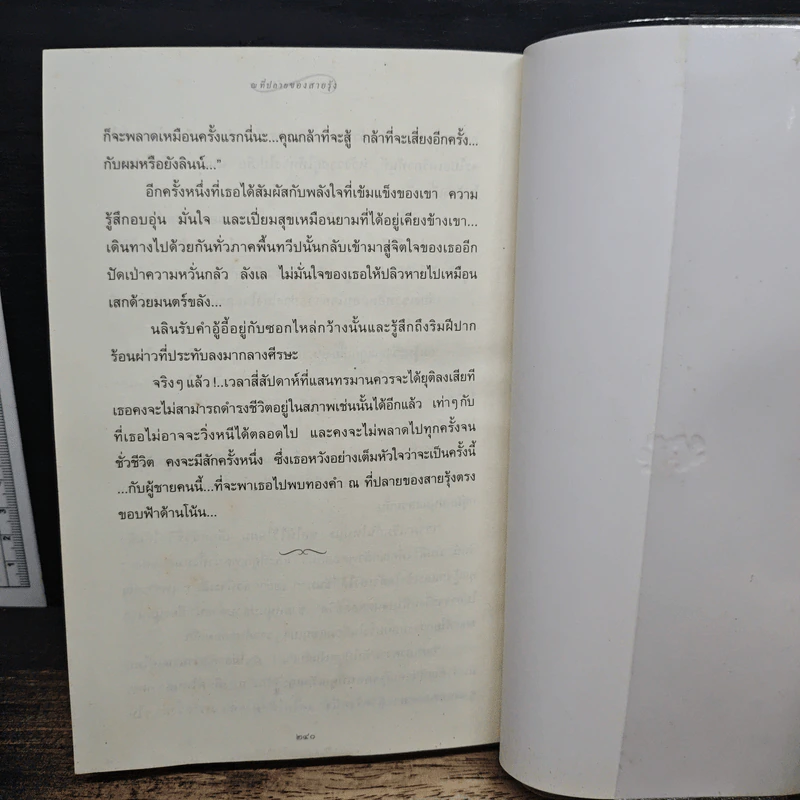 ณ ที่ปลายของสายรุ้ง
ก็จะพลาดเหมือนครั้งแรกนี่นะ...คุณกล้าที่จะสู้ กล้าที่จะเสี่ยงอีกครั้ง...
กับผมหรือยังลินน์..."
อีกครั้งหนึ่งที่เธอได้สัมผัสกับพลังใจที่เข้มแข็งของเขา ความ
รู้สึกอบอุ่น มั่นใจ และเปี่ยมสุขเหมือนยามที่ได้อยู่เคียงข้างเขา...
เดินทางไปด้วยกันทั่วภาคพื้นทวีปนั้นกลับเข้ามาสู่จิตใจของเธออีก
ปัดเป่าความหวั่นกลัว ลังเล ไม่มั่นใจของเธอให้ปลิวหายไปเหมือน
เสกด้วยมนตร์ขลัง...
นลินรับคำอู้อี้อยู่กับซอกไหล่กว้างนั้นและรู้สึกถึงริมฝีปาก
ร้อนผ่าวที่ประทับลงมากลางศีรษะ
จริงๆ แล้ว!..เวลาสี่สัปดาห์ที่แสนทรมานควรจะได้ยุติลงเสียที
เธอคงจะไม่สามารถดำรงชีวิตอยู่ในสภาพเช่นนั้นได้อีกแล้ว เท่าๆ กับ
ที่เธอไม่อาจจะวิ่งหนีได้ตลอดไป และคงจะไม่พลาดไปทุกครั้งจน
ชั่วชีวิต คงจะมีสักครั้งหนึ่ง ซึ่งเธอหวังอย่างเต็มหัวใจว่าจะเป็นครั้งนี้
...กับผู้ชายคนนี้...ที่จะพาเธอไปพบทองคำ ณ ที่ปลายของสายรุ้งตรง
ขอบฟ้าด้านโน้น...
๒๔๐